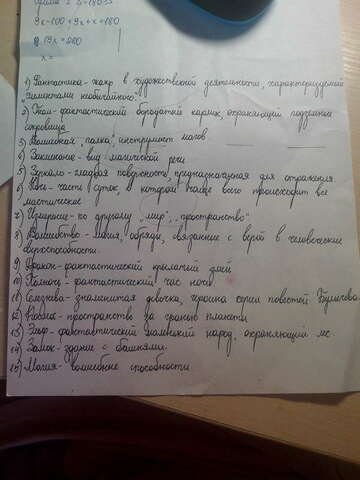 9x-100+9x+x=180
19x=280
x=
1) Фантастика - жанр в художественной деятельности, характеризуемый
"элементами необычайного".
2) Гном - фантастический бородатый карлик, охраняющий подземные
сокровища
3) Волшебная "палка", инструмент магов
4) Заклинание - вид магической речи
5) Зеркало - гладкая поверхность, предназначенная для отражения
6) Ночь - часть суток, в которой чаще всего происходит все
мистическое
7) Измерение - по другому "мир", "пространство"
8) Волшебство - магия, обряды, связанные с верой в человеческие
сверхспособности.
9) Дракон - фантастический крылатый змей
10) Полночь - фантастический час ночи
11) Алиса - знаменитая девочка, героиня серии повестей Булычёва
12) Космос - пространство за гранью планеты
13) Эльф - фантастический маленький народ, охраняющий лес
14) Замок - здание с башнями.
15) Магия - волшебные способности.